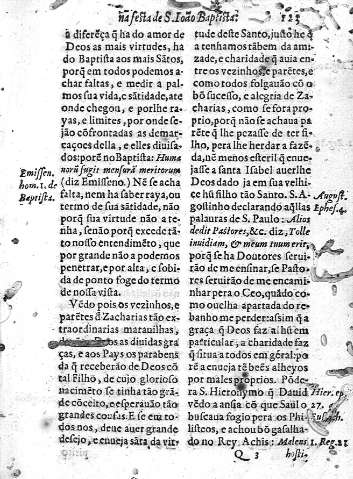 na festa de S. Ioão Baptista. 123
a diferẽça q̃ ha do amor de
Deos as mais virtudes, ha
do Baptista aos mais Sãtos,
porq̃ em todos podemos a-
char faltas, e medir a pal-
mos sua vida, e sãtidade, até
onde chegou, e porlhe ra-
yas, e limites, por onde se-
jão cõfrontadas as demar-
caçoes della, e elles diuisa-
dos: porẽ no Baptista: Huma
norũ fugit mensurã meritorum
(diz Emisseno). Nẽ se acha
falta, nem ha saber raya, ou
termo de sua sãtidade, não
porq̃ sua virtude não a te-
nha, senão porq̃ excede tã-
to nosso entendimẽto, que
por grande não a podemos
penetrar, e por alta, e sobi-
da de ponto foge do termo
de nossa vista.
Emissen.
hom. 1. de
Baptista.
Vẽdo pois os vezinhos, e
parẽtes d̃ Zacharias tão ex-
traordinarias marauilhas,
as diuidas gra-
ças, e aos Pays os parabens
da q̃ receberão de Deos cõ
tal Filho, de cujo glorioso
nacimẽto se tinha tão grã-
de cõceito, e esperauão tão
grandes cousas. E se em to-
dos nos, deue auer grande
desejo, e enueja sãta da vir-
tude deste Santo, justo he q̃
a tenhamos tãbem da ami-
zade, e charidade q̃ auia en-
tre os vezinhos, e parẽtes, e
como todos folgauão cõ o
bõ sucesso, e alegria de Za-
charias, como se fora pro-
prio, porq̃ não se achaua pa
rẽte q̃ lhe pezasse de ter fi-
lho, pera lhe herdar a fazẽ-
da, nẽ menos esteril q̃ enue-
jasse a santa Isabel auerlhe
Deos dado ja em sua velhi-
ce hũ filho tão santo. S. A-
gostinho declarando aq̃llas
palauras de S. Paulo: Alios
dedit Pastores, &c. diz, Tolle
inuidiam, & meum tuum erit,
porq̃ se ha Doutores serui-
rão de me ensinar, se Pasto-
res seruirão de me encami-
nhar pera o Ceo, quãdo co-
mo ouelha apartada do re-
banho me perder: assim q̃ a
graça q̃ Deos faz a hũ em
particular, a charidade faz
q̃ situa a todos em géral: po
rẽ a enueja tẽ bẽs alheyos
por males proprios. Põde-
ra S. Hieronymo q̃ Dauid
vẽdo a ansia cõ que Saul o
buscaua fogio pera os Phi-
listeus, e achou bõ gasalha-
do no Rey Achis: Malens
August.
Ephes. 4.
Hier. ep.
27.
1. Reg. 21
Q 3 hosti-